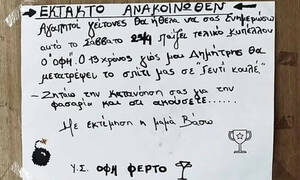 ΕΚΤΑΚΤΟ ΑΝΑΚΟΙΝΩΘΕΝ
Αγαπητοί γείτονες θα ήθελα να σας ενημερώσω
αυτό το Σάββατο 25/4 Παίζει τελικό κυπέλλου
ο ΟΦΗ. Ο 13χρονος γιός μου Δημήτρης θα
μετατρέψει το σπίτι μας σε "Γεντί κουλέ."
- Ζητάω την κατανόηση σας για την
φασαρία και ότι ακούσετε......
Με εκτίμηση η μαμά Βάσω
Υ.Σ. ΟΦΗ ΦΕΡΤΟ